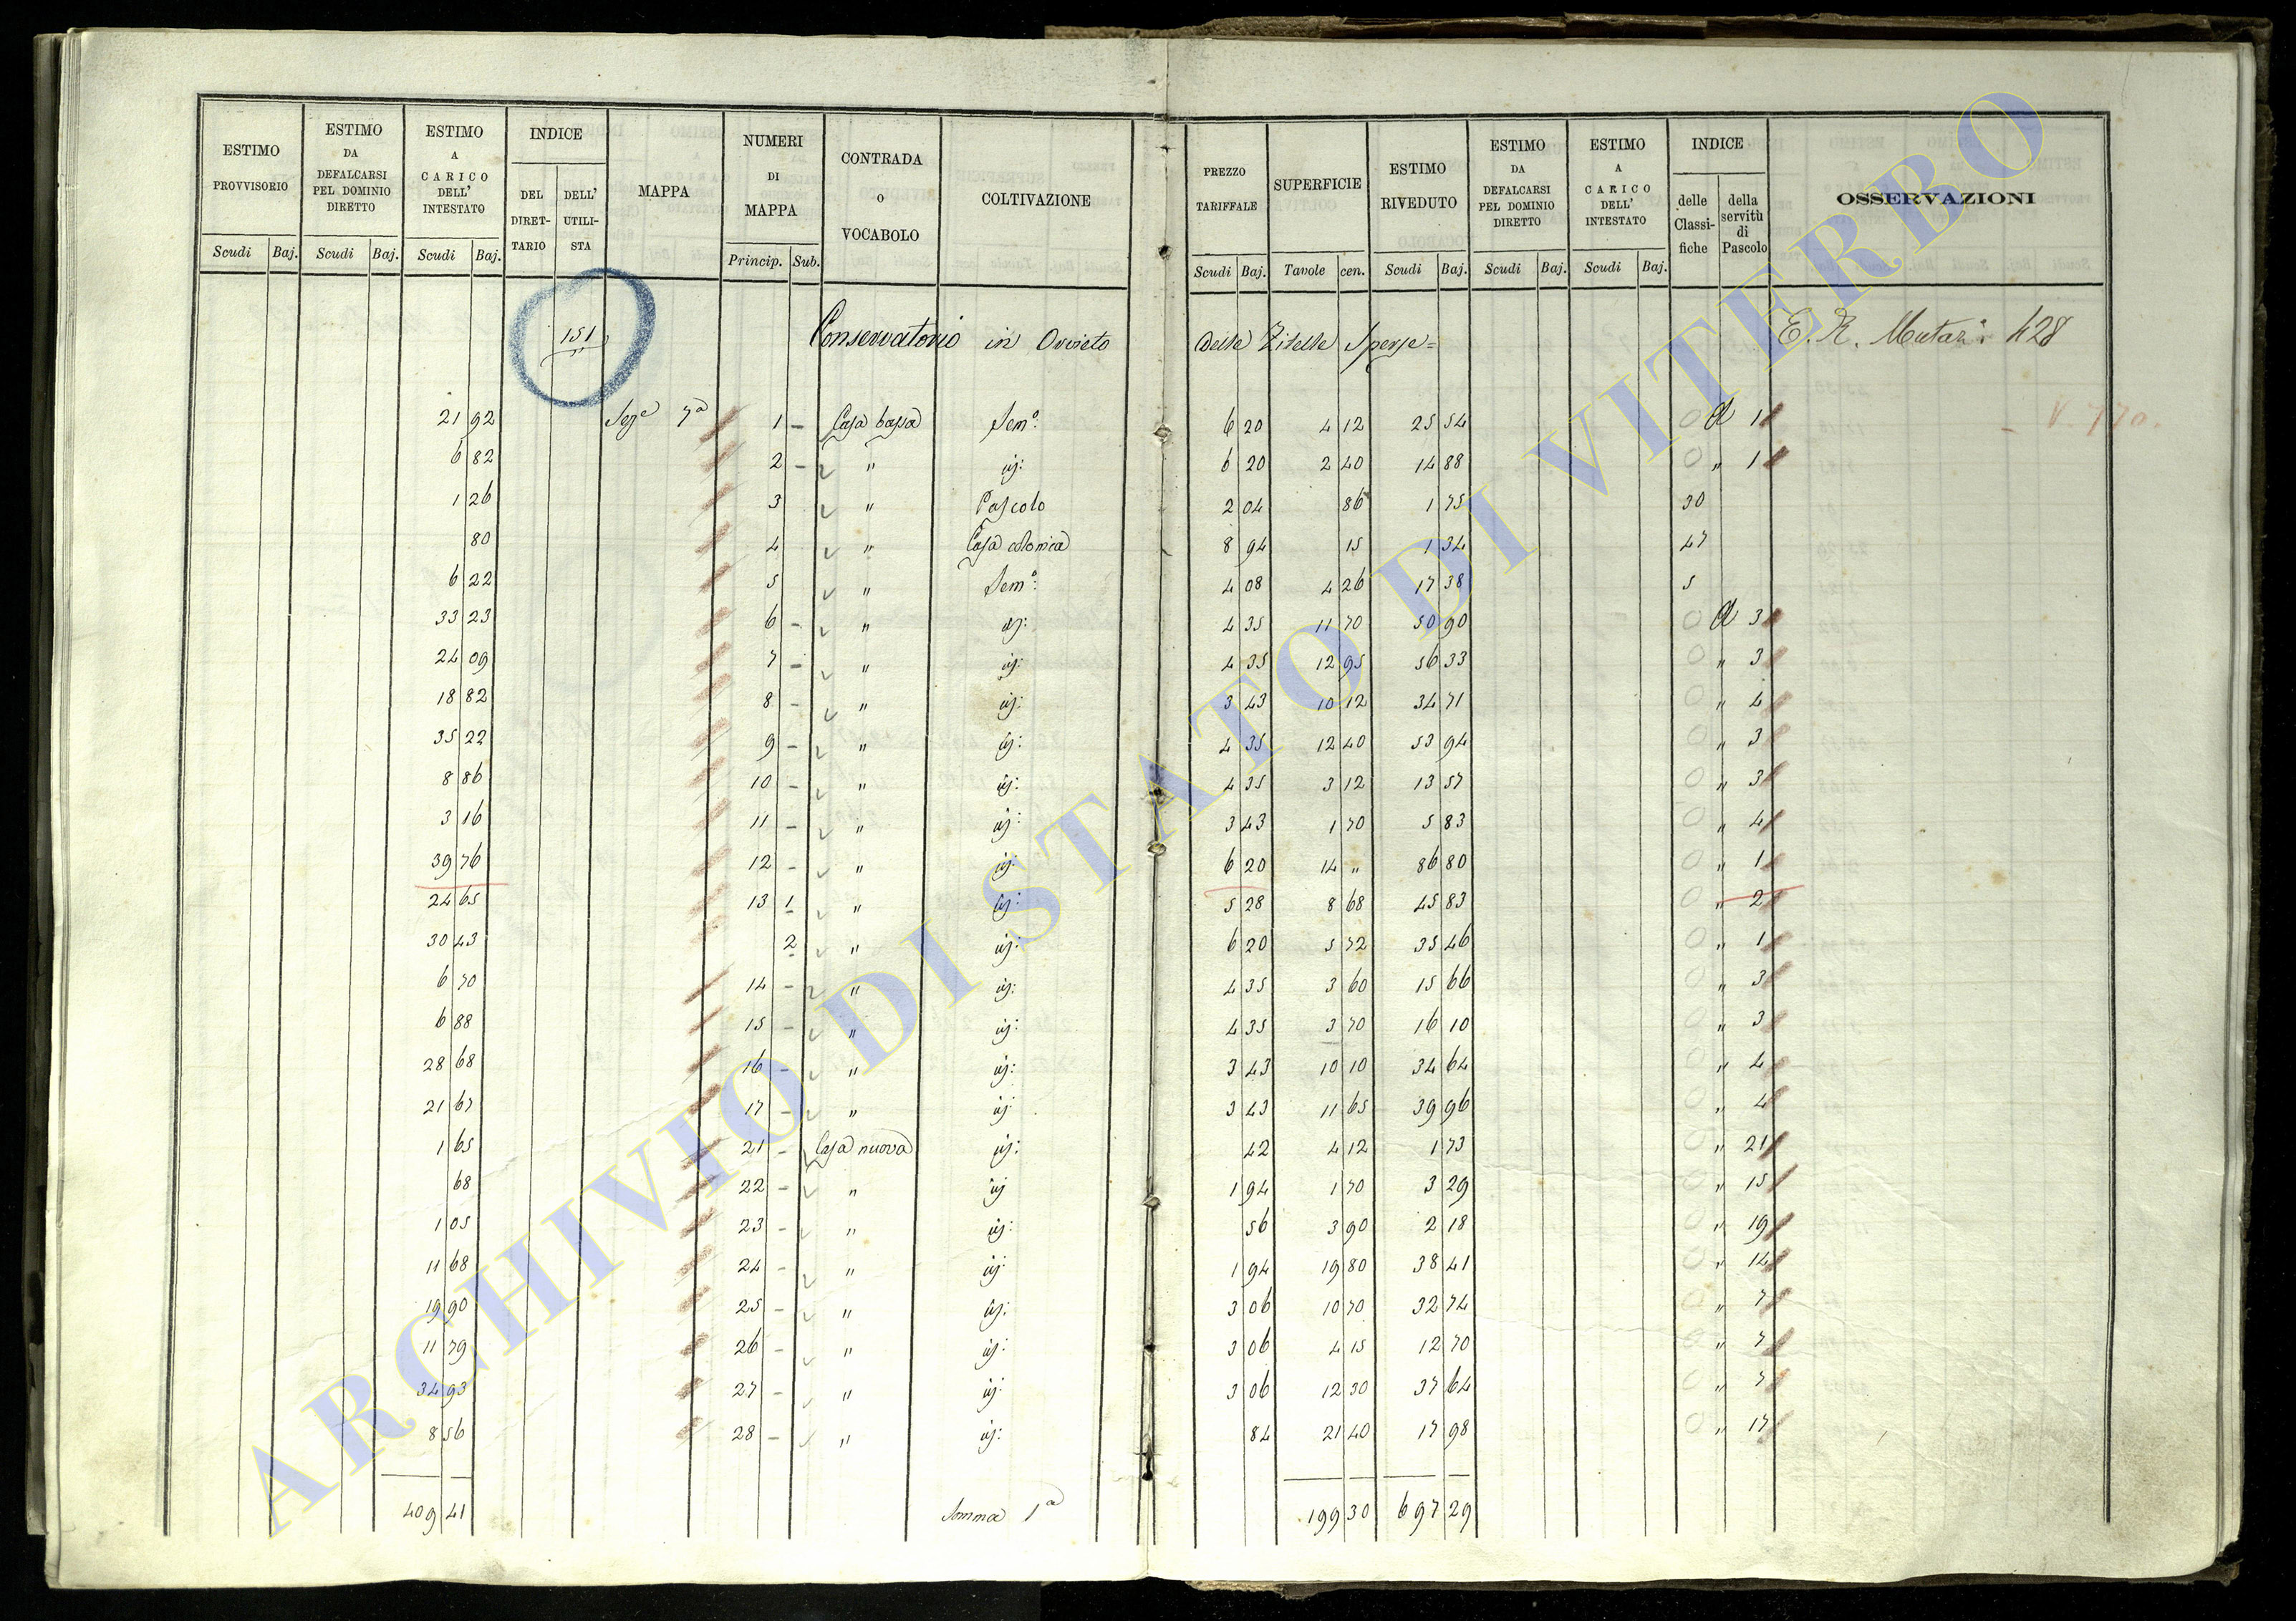 ESTIMO PROVVISORIO Scudi Baj.
ESTIMO DA DEFALCARSI PEL DOMINIO DIRETTO Scudi Baj.
ESTIMO A CARICO DELL' INTESTATO Scudi Baj.
INDICE DEL DIRETTARIO DELL' UTILISTA
MAPPA
NUMERI DI MAPPA Princip. Sub.
CONTRADA O VOCABOLO
COLTIVAZIONE
PREZZO TARIFFALE Scudi Baj.
SUPERFICIE Tavole cen.
ESTIMO RIVEDUTO Scudi Baj.
ESTIMO DA DEFALCARSI PEL DOMINIO DIRETTO Scudi Baj.
ESTIMO A CARICO DELL' INTESTATO Scudi Baj.
INDICE delle Classifiche della servitù di Pascolo
OSSERVAZIONI
151 Conservatorio in Orvieto delle Zitelle Sperse= E. R. Mutaz: 428
21 92 Sez.e 7a 1 – Casa bassa Sem.o: 6 20 4 12 25 54 0 a 1 V. 770.
6 82 2 – " id: 6 20 2 40 14 88 0 " 1
1 26 3 " Pascolo 2 04 86 1 75 30
80 4 " Casa colonica 8 94 15 1 34 47
6 22 5 " Sem.o: 4 08 4 26 17 38 5
33 23 6 – " id: 4 35 11 70 50 90 0 a 3
24 09 7 – " id: 4 35 12 95 56 33 0 " 3
18 82 8 – " id: 3 43 10 12 34 71 0 " 4
35 22 9 – " id: 4 35 12 40 53 94 0 " 3
8 86 10 – " id: 4 35 3 12 13 57 0 " 3
3 16 11 – " id: 3 43 1 70 5 83 0 " 4
39 76 12 – " id: 6 20 14 " 86 80 0 " 1
24 65 13 1 " id: 5 28 8 68 45 83 0 " 2
30 43 2 " id: 6 20 5 72 35 46 0 " 1
6 70 14 – " id: 4 35 3 60 15 66 0 " 3
6 88 15 – " id: 4 35 3 70 16 10 0 " 3
28 68 16 – " id: 3 43 10 10 34 64 0 " 4
21 67 17 – " id: 3 43 11 65 39 96 0 " 4
1 65 21 – Casa nuova id: 42 4 12 1 73 0 " 21
68 22 – " id 1 94 1 70 3 29 0 " 15
1 05 23 – " id: 56 3 90 2 18 0 " 19
11 68 24 – " id: 1 94 19 80 38 41 0 " 14
19 90 25 – " id: 3 06 10 70 32 74 0 " 7
11 79 26 – " id: 3 06 4 15 12 70 0 " 7
34 93 27 – " id: 3 06 12 30 37 64 0 " 7
8 56 28 – " id: 84 21 40 17 98 0 " 17
409 41 Somma 1a 199 30 697 29
ARCHIVIO DI STATO DI VITERBO